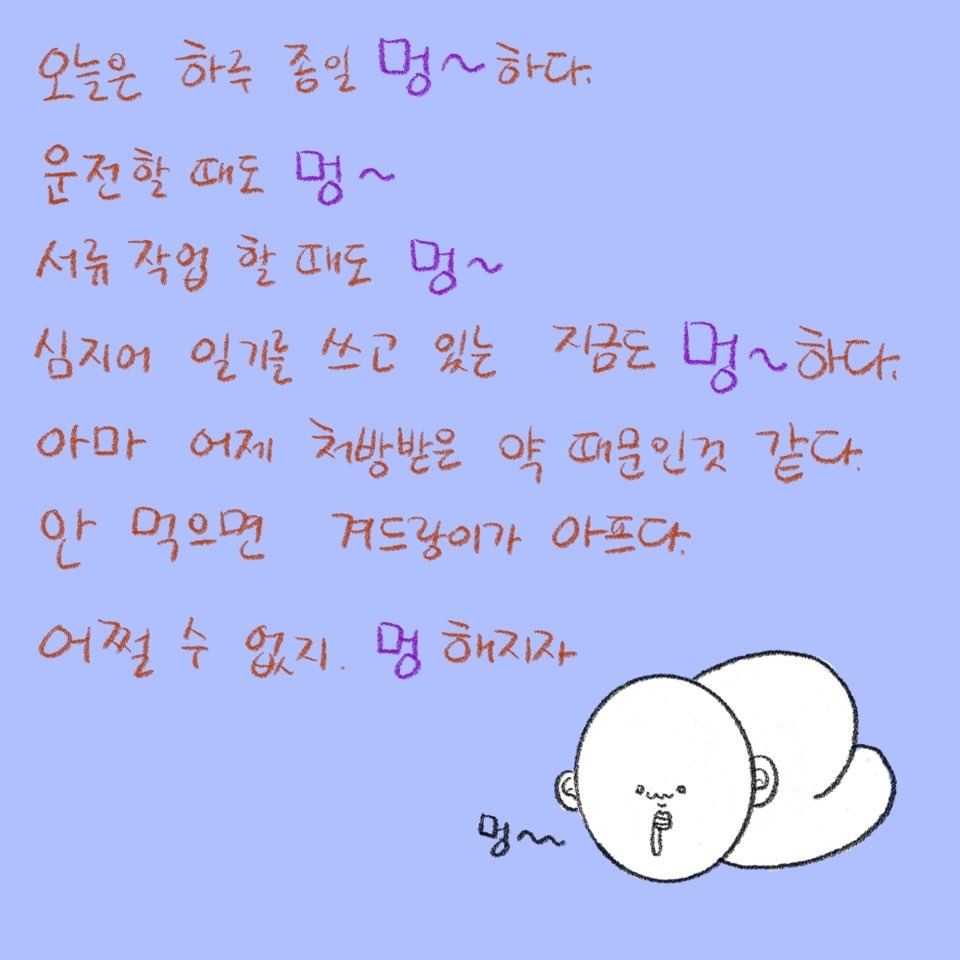 오늘은 하루 종일 멍~하다.
운전할 때도 멍~
서류 작업 할 때도 멍~
심지어 일기를 쓰고 있는 지금도 멍~하다.
아마 어제 처방받은 약 때문인것 같다.
안 먹으면 겨드랑이가 아프다.
어쩔 수 없지. 멍 해지자
멍~~